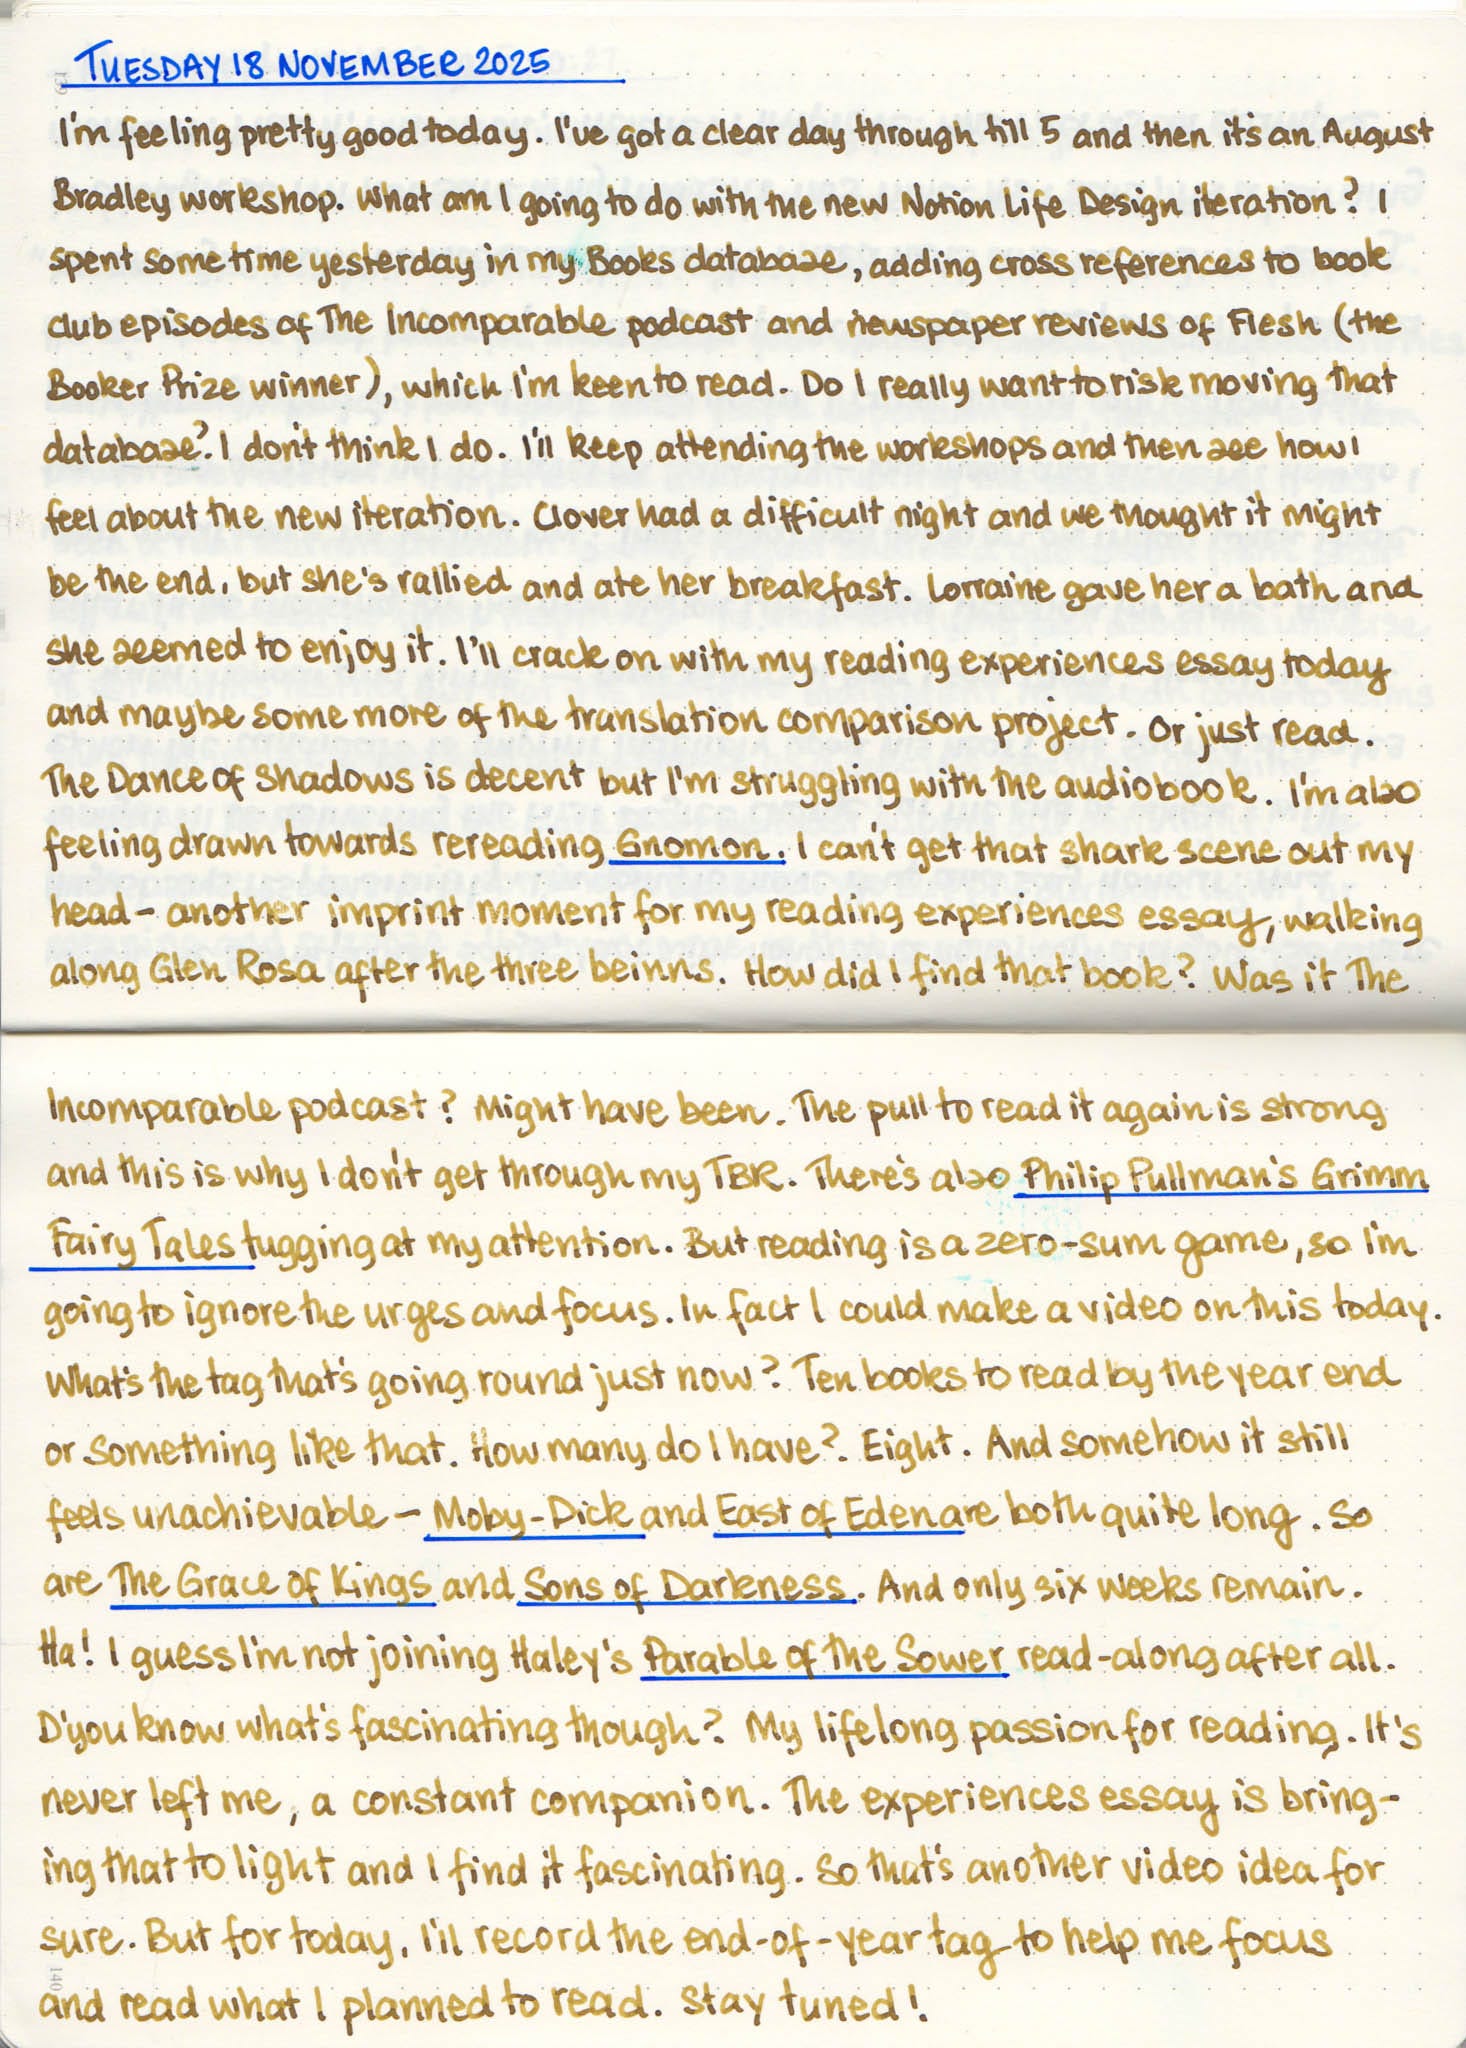 TUESDAY 18 NOVEMBER 2025
I'm feeling pretty good today. I've got a clear day through till 5 and then it's an August
Bradley workshop. What am I going to do with the new Notion Life Design iteration? I
spent some time yesterday in my Books database, adding cross references to book
club episodes of The Incomparable podcast and newspaper reviews of Flesh (the
Booker Prize winner), which I'm keen to read. Do I really want to risk moving that
database? I don't think I do. I'll keep attending the workshops and then see how I
feel about the new iteration. Clover had a difficult night and we thought it might
be the end, but she's rallied and ate her breakfast. Lorraine gave her a bath and
she seemed to enjoy it. I'll crack on with my reading experiences essay today
and maybe some more of the translation comparison project. Or just read.
The Dance of Shadows is decent but I'm struggling with the audiobook. I'm also
feeling drawn towards rereading Gnomon. I can't get that shark scene out my
head - another imprint moment for my reading experiences essay, walking
along Glen Rosa after the three beinns. How did I find that book? Was it The
Incomparable podcast? Might have been. The pull to read it again is strong
and this is why I don't get through my TBR. There's also Philip Pullman's Grimm
Fairy Tales tugging at my attention. But reading is a zero-sum game, so I'm
going to ignore the urges and focus. In fact I could make a video on this today.
What's the tag that's going round just now? Ten books to read by the year end
or something like that. How many do I have? Eight. And somehow it still
feels unachievable - Moby-Dick and East of Eden are both quite long. So
are The Grace of Kings and Sons of Darkness. And only six weeks remain.
Ha! I guess I'm not joining Haley's Parable of the Sower read-along after all.
D'you know what's fascinating though? My lifelong passion for reading. It's
never left me, a constant companion. The experiences essay is bring-
ing that to light and I find it fascinating. So that's another video idea for
sure. But for today, I'll record the end-of-year tag to help me focus
140
and read what I planned to read. Stay tuned!